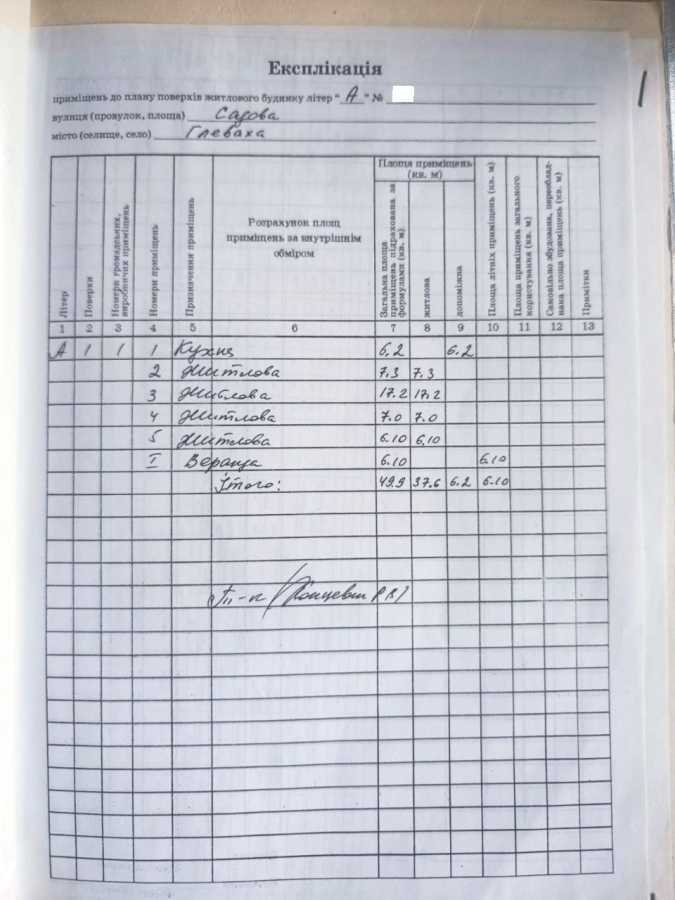 Експлікація
приміщень до плану поверхів житлового будинку літер " А " №
вулиця (провулок, площа) Садова
місто (селище, село) Глеваха
Літер
Поверхи
Номери громадських, виробничих приміщень
Номери приміщень
Призначення приміщень
Розрахунок площ
приміщень за внутрішнім
обміром
Площа приміщень
(кв. м)
Загальна площа
приміщень підрахована за
формулами (кв. м)
житлова
допоміжна
Площа літніх приміщень (кв. м)
Площа приміщень загального
користування (кв. м)
Самовільно збудована, переоблад-
нана площа приміщень (кв. м)
Примітки
1 2 3 4 5 6 7 8 9 10 11 12 13
А 1 1 1 Кухня 6.2 6.2
2 Житлова 7.3 7.3
3 Житлова 17.2 17.2
4 Житлова 7.0 7.0
5 Житлова 6.10 6.10
I Веранда 6.10 6.10
Ітого: 49.9 37.6 6.2 6.10